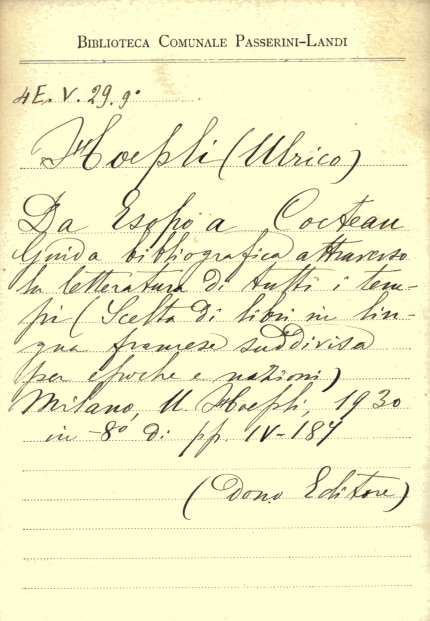 BIBLIOTECA COMUNALE PASSERINI-LANDI
4E. V. 29. 9°
Hoepli (Ulrico)
Da Esopo a Cocteau
Guida bibliografica attraverso
la letteratura di tutti i tem-
pi (Scelta di libri in lin-
gua francese suddivisa
per epoche e nazioni)
Milano, U. Hoepli, 1930
in -8° di pp. IV-187
(Dono Editore)